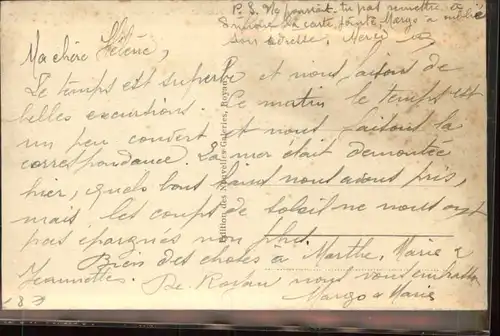 P.S. Ne pourrait tu pas remettre à
la carte jointe Margo a oublié
son adresse, Merci
Ma chère Hélène,
Le temps est superbe et nous faisons de
belles excursions. Ce matin le temps est
un peu couvert et nous faisons la
correspondance. La mer était démontée
hier, quels bons bains nous avons pris,
mais les coups de soleil ne nous ont
pas épargnés non plus.
Bien des choses à Marthe, Marie &
Jeannette. De Royan nous vous embrassons
Margo & Marie
Edition des Nouvelles Galeries, Royan